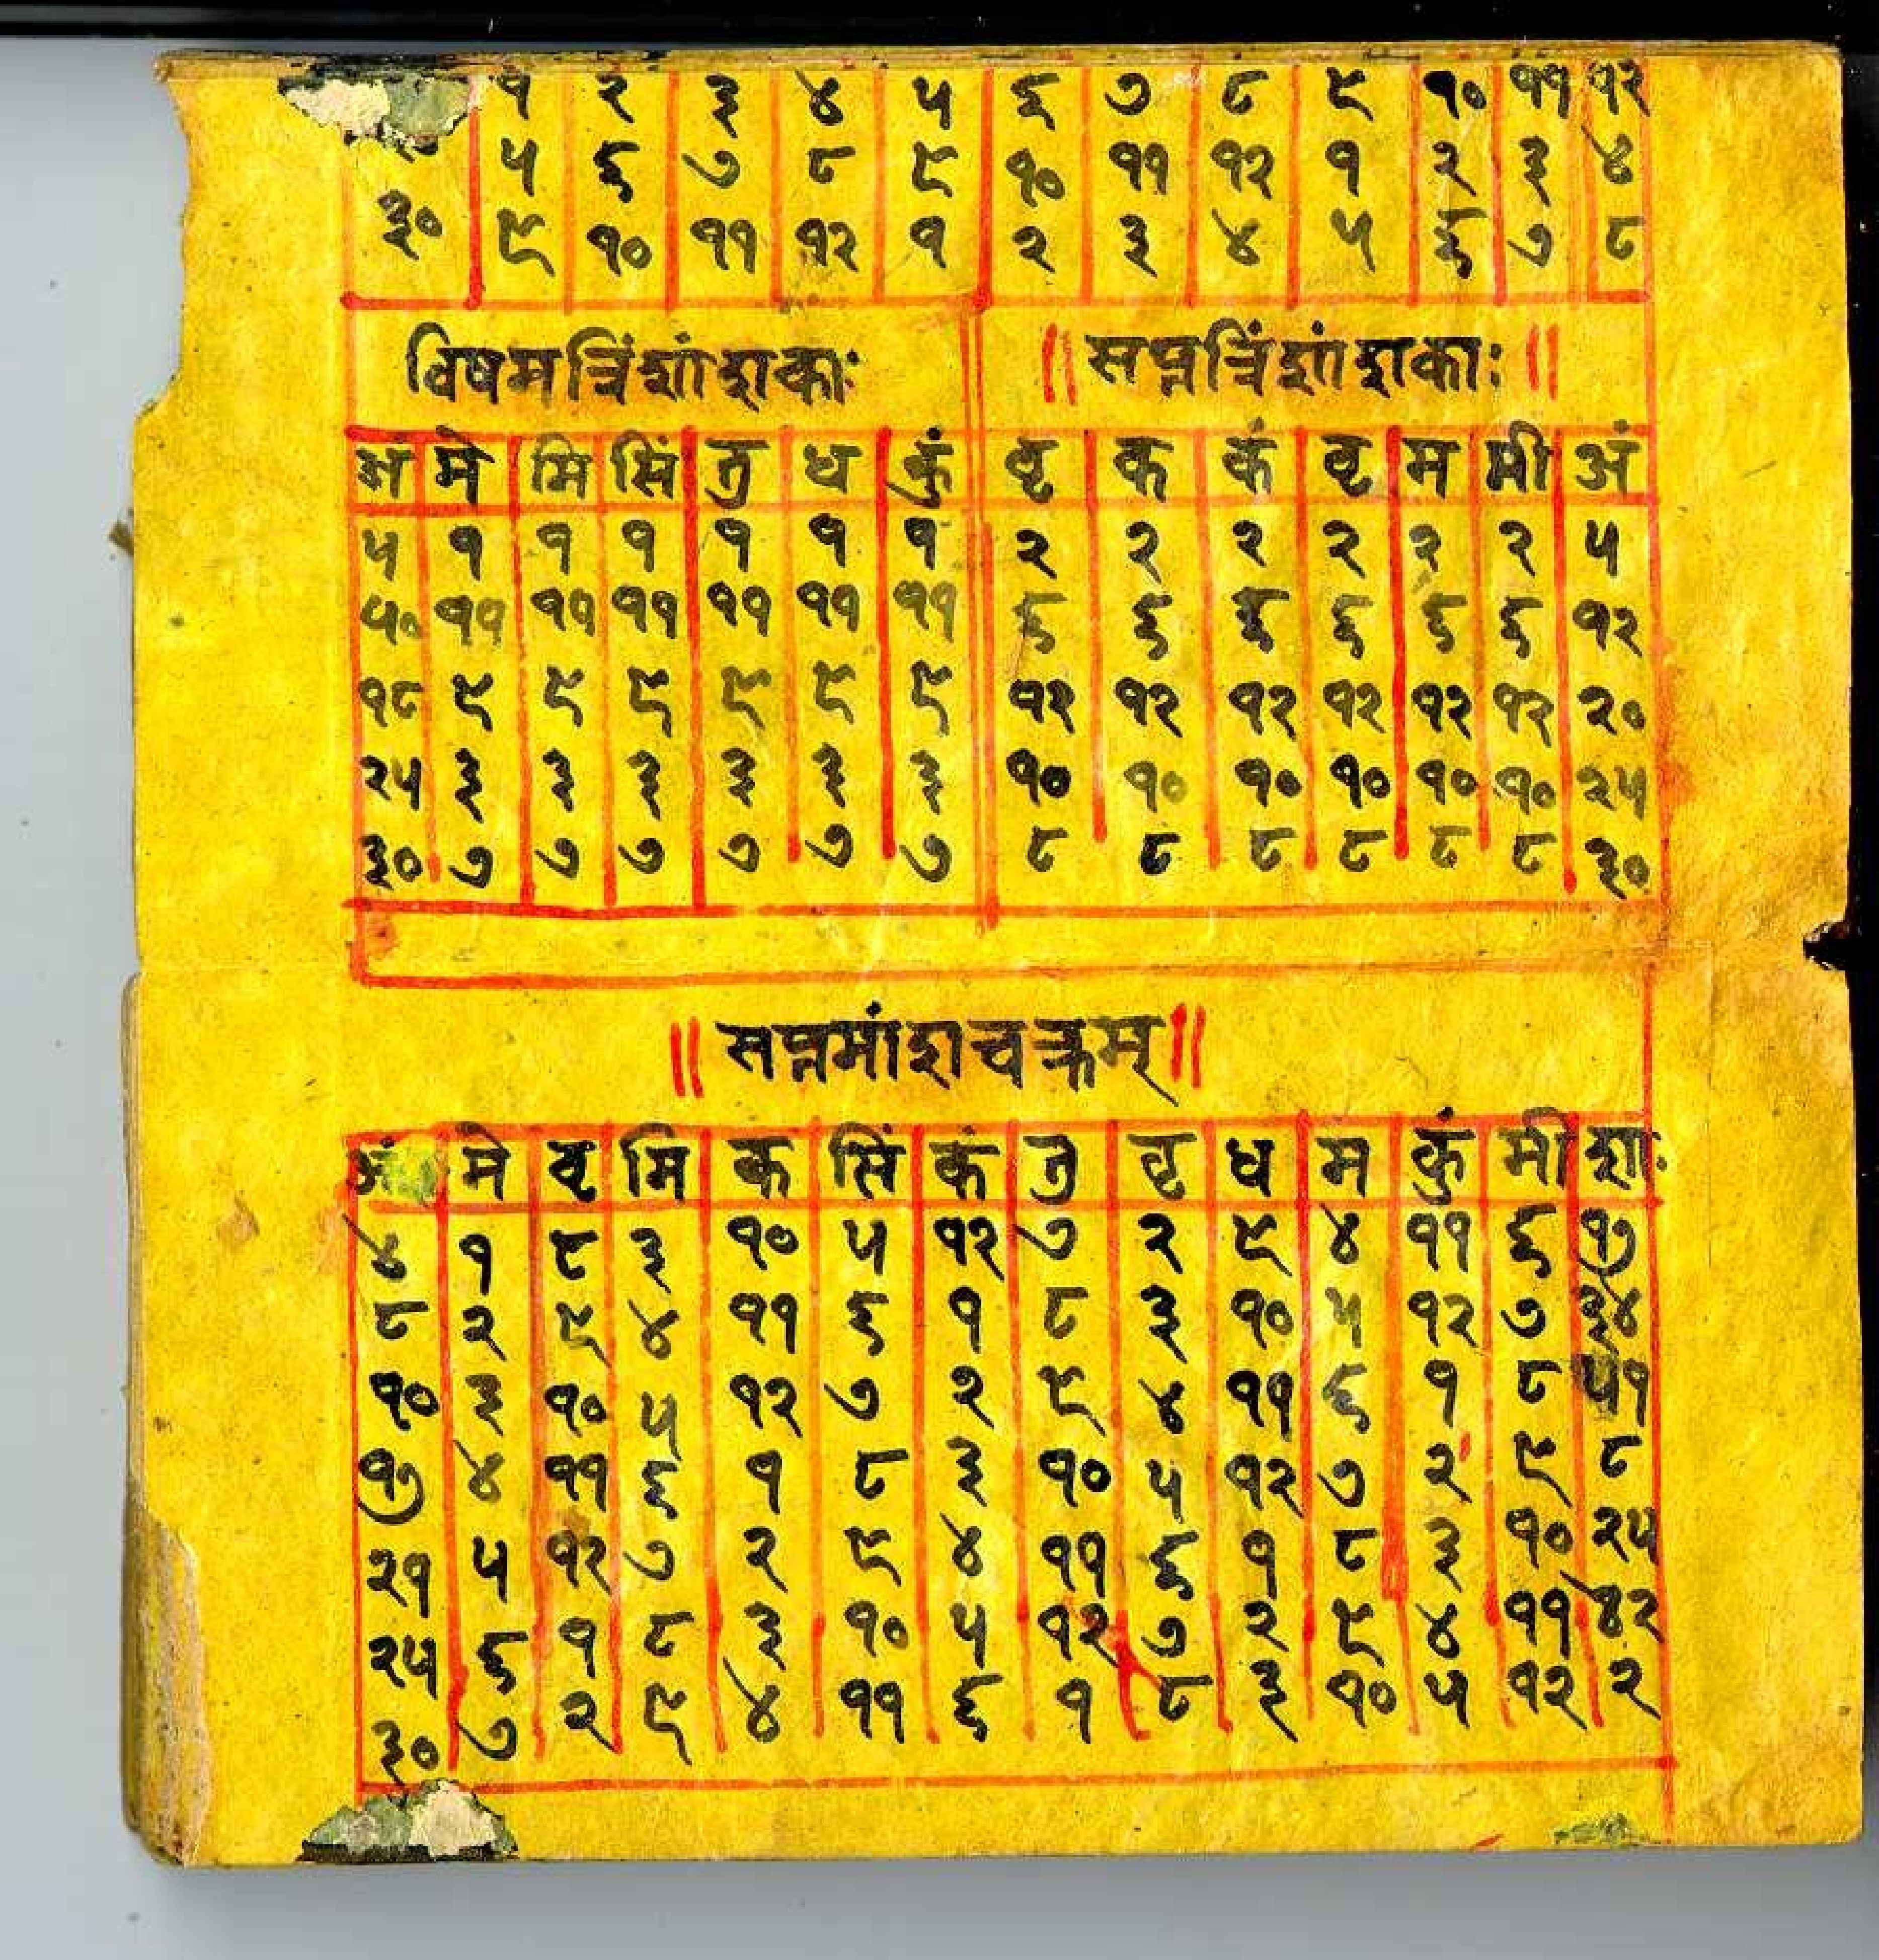 १ २ ३ ४ ५ ६ ७ ८ ९ १० ११ १२
५ ६ ७ ८ ९ १० ११ १२ १ २ ३ ४
३० ९ १० ११ १२ १ २ ३ ४ ५ ६ ७ ८
विषमत्रिंशांशकाः ॥ सप्तत्रिंशांशकाः ॥
अं मे मि सिं तु ध कुं वृ क कं वृ म मी अं
५ १ १ १ १ १ १ २ २ २ २ २ २ ५
५० ११ ११ ११ ११ ११ ११ ६ ६ ६ ६ ६ ६ १२
१८ ९ ९ ९ ९ ९ ९ १२ १२ १२ १२ १२ १२ २०
२५ ३ ३ ३ ३ ३ ३ १० १० १० १० १० १० २५
३० ७ ७ ७ ७ ७ ७ ८ ८ ८ ८ ८ ८ ३०
॥ सप्तमांशचक्रम् ॥
अं मे वृ मि क सिं कं तु वृ ध म कुं मी शाः
४ १ ८ ३ १० ५ १२ ७ २ ९ ४ ११ ६ १७
८ २ ९ ४ ११ ६ १ ८ ३ १० ५ १२ ७ ३४
१० ३ १० ५ १२ ७ २ ९ ४ ११ ६ १ ८ ५१
१७ ४ ११ ६ १ ८ ३ १० ५ १२ ७ २ ९ ८
२१ ५ १२ ७ २ ९ ४ ११ ६ १ ८ ३ १० २५
२५ ६ १ ८ ३ १० ५ १२ ७ २ ९ ४ ११ ४२
३० ७ २ ९ ४ ११ ६ १ ८ ३ १० ५ १२ २